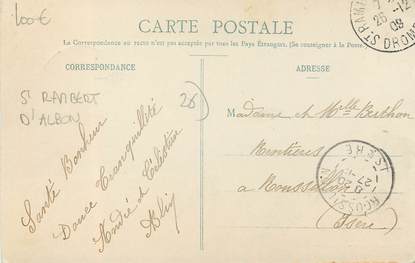 100€
CARTE POSTALE
La Correspondance au recto n'est pas acceptée par tous les Pays Étrangers. (Se renseigner à la Poste)
CORRESPONDANCE
ADRESSE
ST RAMBERT
D'ALBON
26)
Santé Bonheur
Douce Tranquilité
André et Célestine
Madame et Melle Berthon
Rentières
a Roussillon
(Isère)
26 -12
09
DROME
ROUSSILLON
27
ISERE